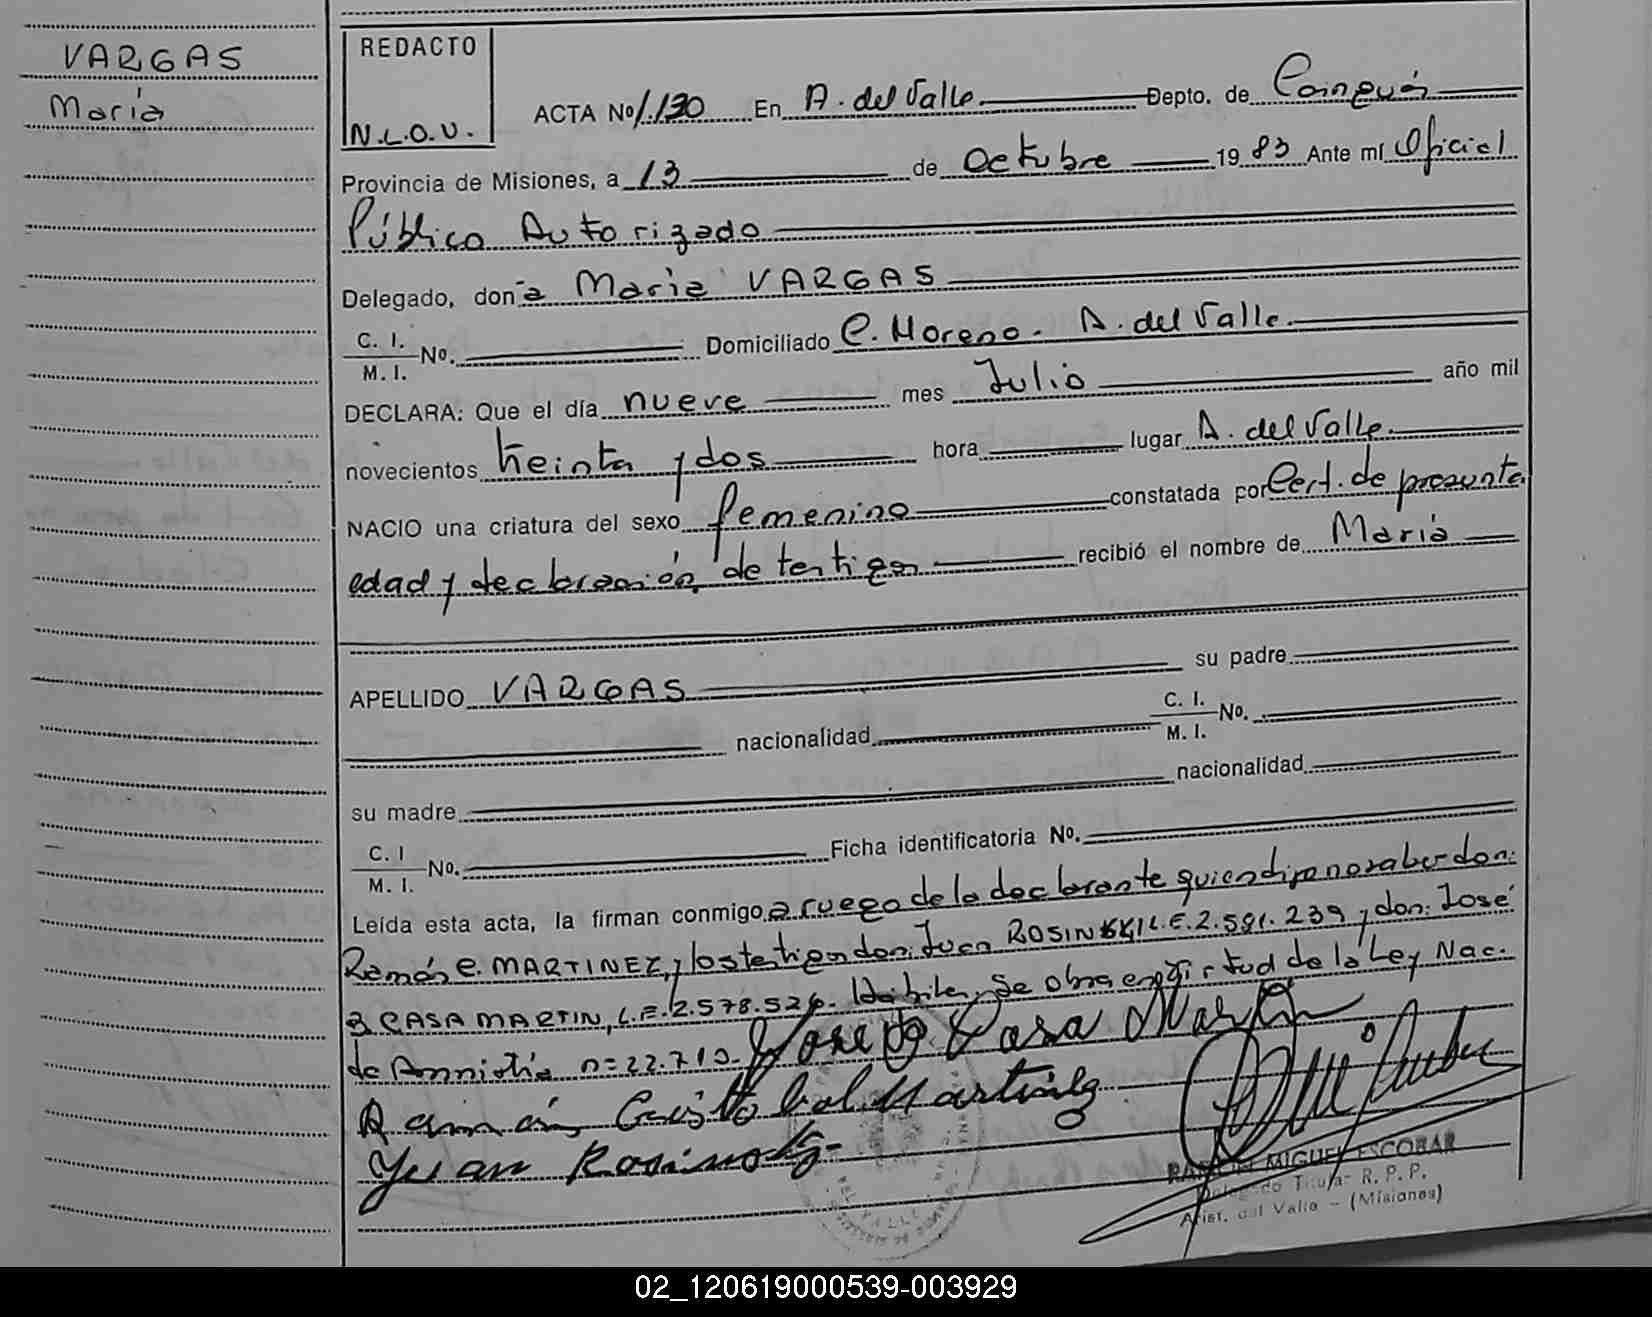 VARGAS
María
REDACTO
N.L.O.V.
ACTA No 1.130 En A. del Valle Depto. de Cainguás
Provincia de Misiones, a 13 de Octubre 1983 Ante mí Oficial
Público Autorizado
Delegado, don a María VARGAS
C. I.
M. I. No. Domiciliado C. Moreno - A. del Valle.
DECLARA: Que el día nueve mes Julio año mil
novecientos treinta y dos hora lugar A. del Valle.
NACIO una criatura del sexo femenino constatada por Cert. de presunta
edad y declaración de testigos recibió el nombre de María
APELLIDO VARGAS su padre
nacionalidad C. I.
M. I. No.
su madre nacionalidad
C. I
M. I. No. Ficha identificatoria No.
Leída esta acta, la firman conmigo a ruego de la declarante quien dijo no saber don:
Ramón C. MARTINEZ, y los testigos don: Juan ROSINSKI L.E. 2.591.239 y don: José
CASA MARTIN, L.E. 2.578.526. Hábiles, Se obra en virtud de la Ley Nac.
de Amnistía n=22.710.- José Casa Martín
Ramón Cristobal Martínez
Juan Rosinski
RAMON MIGUEL ESCOBAR
Delegado Titular R. P. P.
Arist. del Valle - (Misiones)
02_120619000539-003929